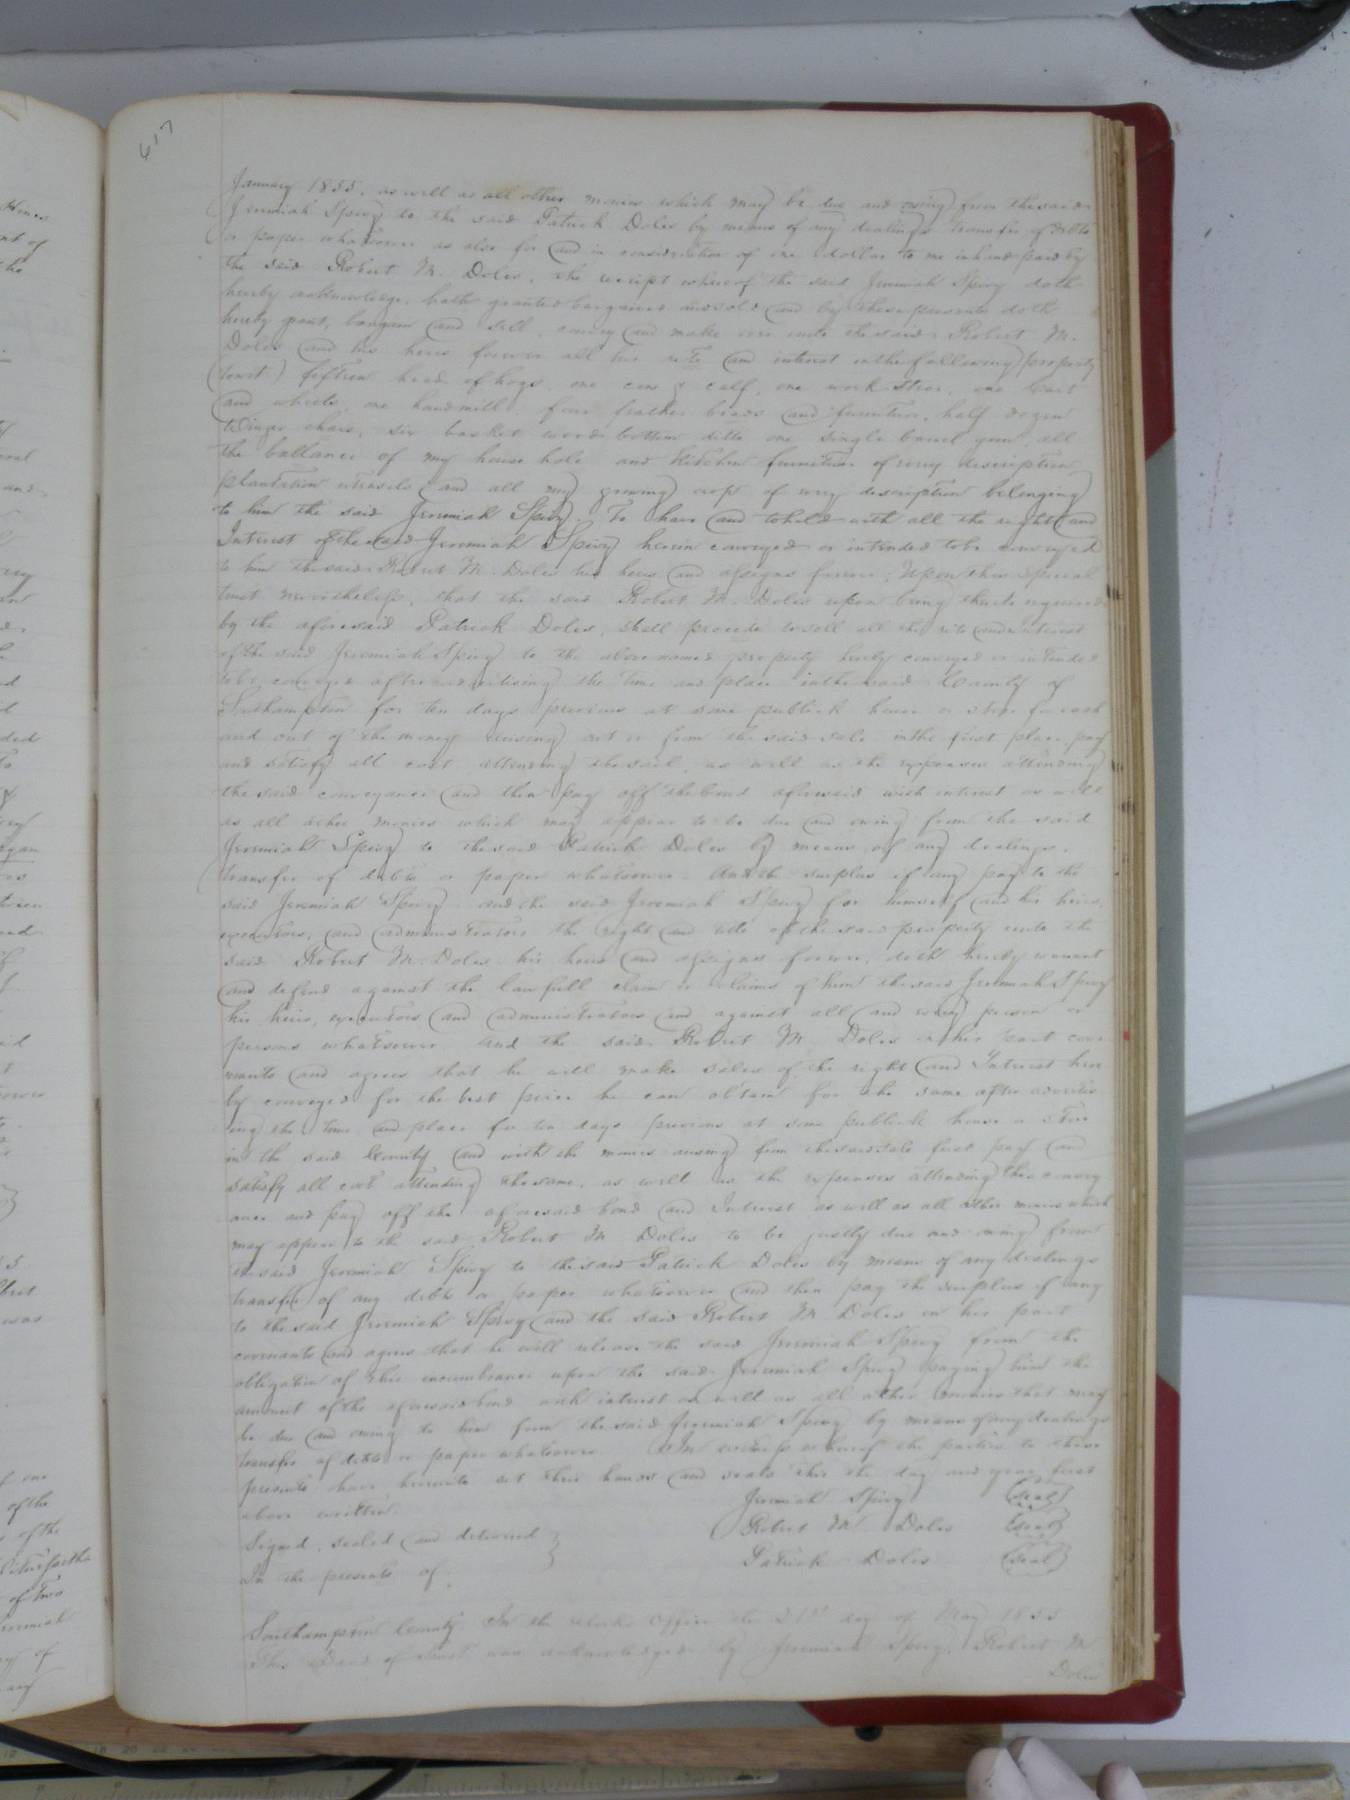 617
January 1855, as well as all other monies which may be due and owing from the said
Jeremiah Spivy to the said Patrick Doles by means of any dealings transfer of debts
or paper whatsoever as also for and in consideration of one dollar to me in hand paid by
the said Robert M. Doles, the receipt whereof the said Jeremiah Spivy doth
hereby acknowledge, hath granted bargained and sold and by these presents doth
hereby grant, bargain and sell, convey and make over unto the said Robert M.
Doles and his heirs forever all his rite and interest in the following property
(towit) fifteen head of hogs, one cow & calf, one work steer, one cart
and wheels, one handmill, four feather beads and furniture, half dozen
Winzer chars, six basket wood bottom ditto one single barrel gun, all
the ballance of my house hole and kitchen furniture of every description
plantation utensils and all my growing crop of every description belonging
to him the said Jeremiah Spivy. To have and to hold with all the right and
Interest of the said Jeremiah Spivy herein conveyed or intended to be conveyed
to him the said Robert M. Doles his heirs and assigns forever; Upon this special
trust nevertheless, that the said Robert M. Doles upon being thereto required
by the aforesaid Patrick Doles, shall procede to sell all the rite and interest
of the said Jeremiah Spivy to the above named property hereby conveyed or intended
to be conveyed after advertising the time and place in the said County of
Southampton for ten days previous at some publick house or store for cash
and out of the money arising out or from the said sale in the first place pay
and satisfy all cost attending the sail, as well as the expenses attending
the said conveyance and then pay off the bond aforesaid with interest as well
as all other monies which may appear to be due and owing from the said
Jeremiah Spivy to the said Patrick Doles by means of any dealings,
transfer of debts or paper whatsoever. And the surplus if any pay to the
said Jeremiah Spivy. and the said Jeremiah Spivy for himself and his heirs,
executors, and administrators the right and title of the said property unto the
said Robert M. Doles his heirs and assigns forever, doth hereby warrant
and defend against the lawfull claim or claims of him the said Jeremiah Spivy
his heirs, executors and administrators and against all and every person or
persons whatsoever and the said Robert M. Doles on his part cove
nants and agrees that he will make sales of the right and Interest here
by conveyed for the best price he can obtain for the same after advertis
ing the time and place for ten days previous at some publick house or store
in the said County and with the monies arising from the said sale first pay an
satisfy all cost attending the same, as well as the expenses attending this convey
ance and pay off the aforesaid bond and Interest as well as all other monies which
may appear to the said Robert M Doles to be justly due and owing from
the said Jeremiah Spivy to the said Patrick Doles by means of any dealings
transfer of any debts or paper whatsoever and then pay the surplus if any
to the said Jeremiah Spivy and the said Robert M Doles on his part
covenants and agrees that he will release the said Jeremiah Spivy from the
obligation of this incumbrance upon the said Jeremiah Spivy paying him the
amount of the aforesaid bond with interest as well as all other monies that may
be due and owing to him from the said Jeremiah Spivy by means of any dealings
transfer of debts or paper whatsoever. In witness whereof the parties to these
presents have hereunto set their hands and seals this the day and year first
above written.
Jeremiah Spivy (seal)
Signed, sealed and delivered
Robert M Doles (seal)
In the presents of
Patrick Doles (seal)
Southampton County In the clerks office the 21st day of May 1855
This Deed of trust was acknowledged by Jeremiah Spivy, Robert M
Doles